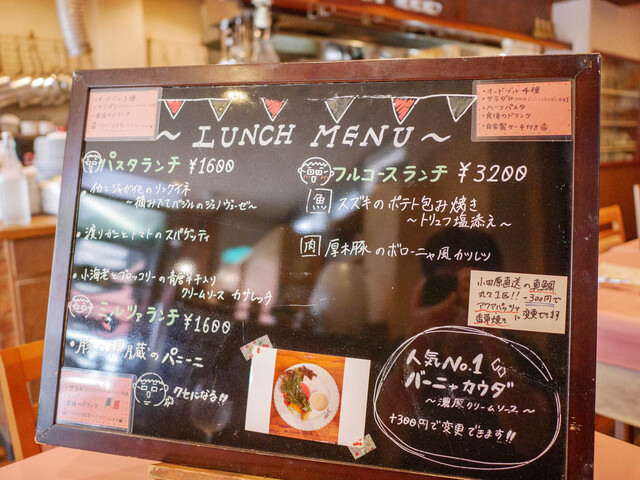 ・オードブル4種
・ハーフパスタ
・食後のドリンク
・自家製ケーキ付き
～ LUNCH MENU ～
パスタランチ ¥1600
・イカとジャガイモのリングイネ
～摘みたてバジルのジェノヴェーゼ～
・渡りガニとトマトのスパゲッティ
・小海老とブロッコリーの青唐辛子入り
クリームソース カサレッチェ
ランチ ¥1600
のパニーニ
クセになる!!
フルコースランチ ¥3200
魚 スズキのポテト包み焼き
～トリュフ塩添え～
肉 厚木豚のボローニャ風カツレツ
小田原直送の真鯛
丸々1匹!! +300円で
アクアパッツァ
香草焼き に変更できます
人気No.1
バーニャカウダ
～濃厚クリームソース～
+300円で変更できます!!